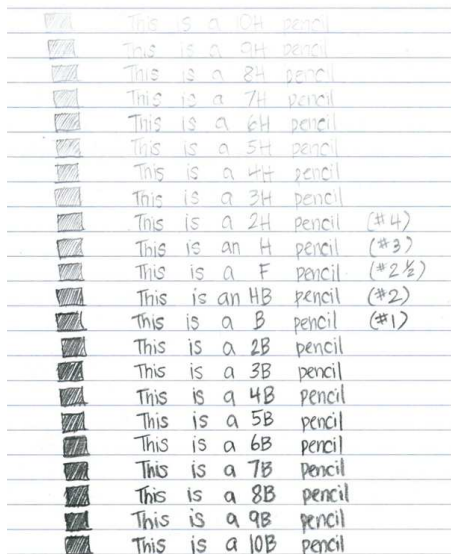 This is a 10H pencil
This is a 9H pencil
This is a 8H pencil
This is a 7H pencil
This is a 6H pencil
This is a 5H pencil
This is a 4H pencil
This is a 3H pencil
This is a 2H pencil (#4)
This is an H pencil (#3)
This is a F pencil (#2 ½)
This is an HB pencil (#2)
This is a B pencil (#1)
This is a 2B pencil
This is a 3B pencil
This is a 4B pencil
This is a 5B pencil
This is a 6B pencil
This is a 7B pencil
This is a 8B pencil
This is a 9B pencil
This is a 10B pencil